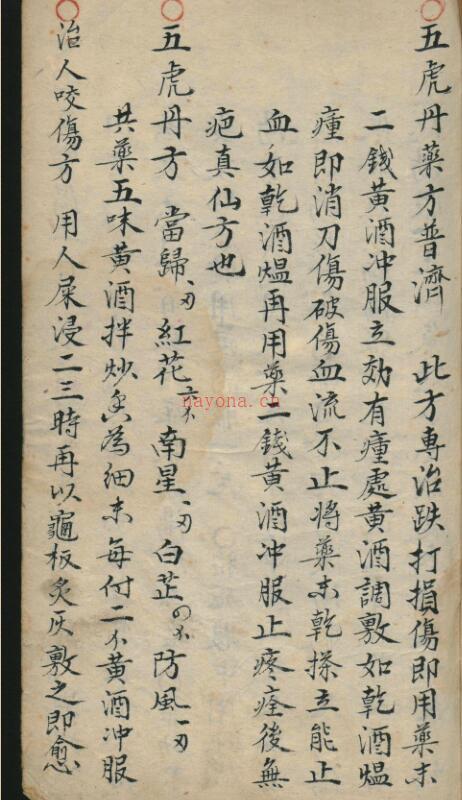 五虎丹藥方普濟 此方專治跌打損傷即用藥末
二錢黃酒冲服立効有瘇處黃酒調敷如乾酒熅
瘇即消刀傷破傷血流不止將藥末乾搽立能止
血如乾酒熅再用藥二錢黃酒冲服止疼痊後無
疤真仙方也
五虎丹方 當歸 紅花 南星 白芷 防風
共藥五味黃酒拌炒為細末每付二黃酒冲服
治人咬傷方 用人屎浸二三時再以龜板炙灰敷之即愈
nayona.cn